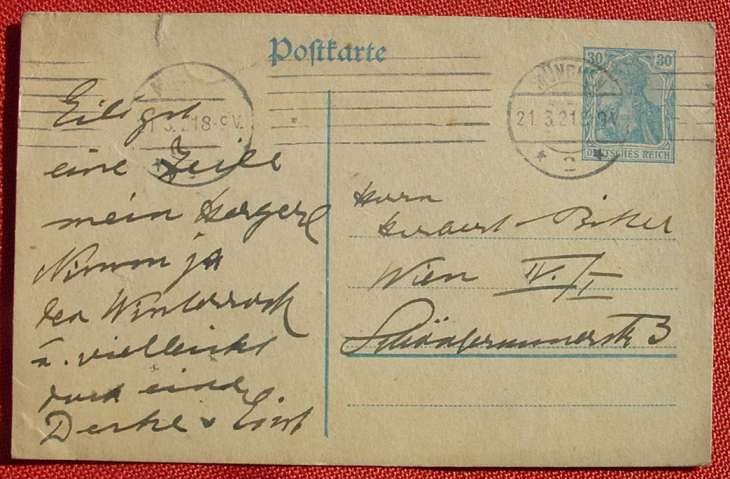 Postkarte
30 30
DEUTSCHES REICH
MÜNCHEN
21.3.21 8-9V.
* 2 *
1.3.21 8-9V.
Eiligst
eine Zeile
mein
Nimm ja
den Winterrock
u. vielleicht
noch eine
Decke
Herrn
Herbert
Wien IV./I
Schönbrunnerstr 3